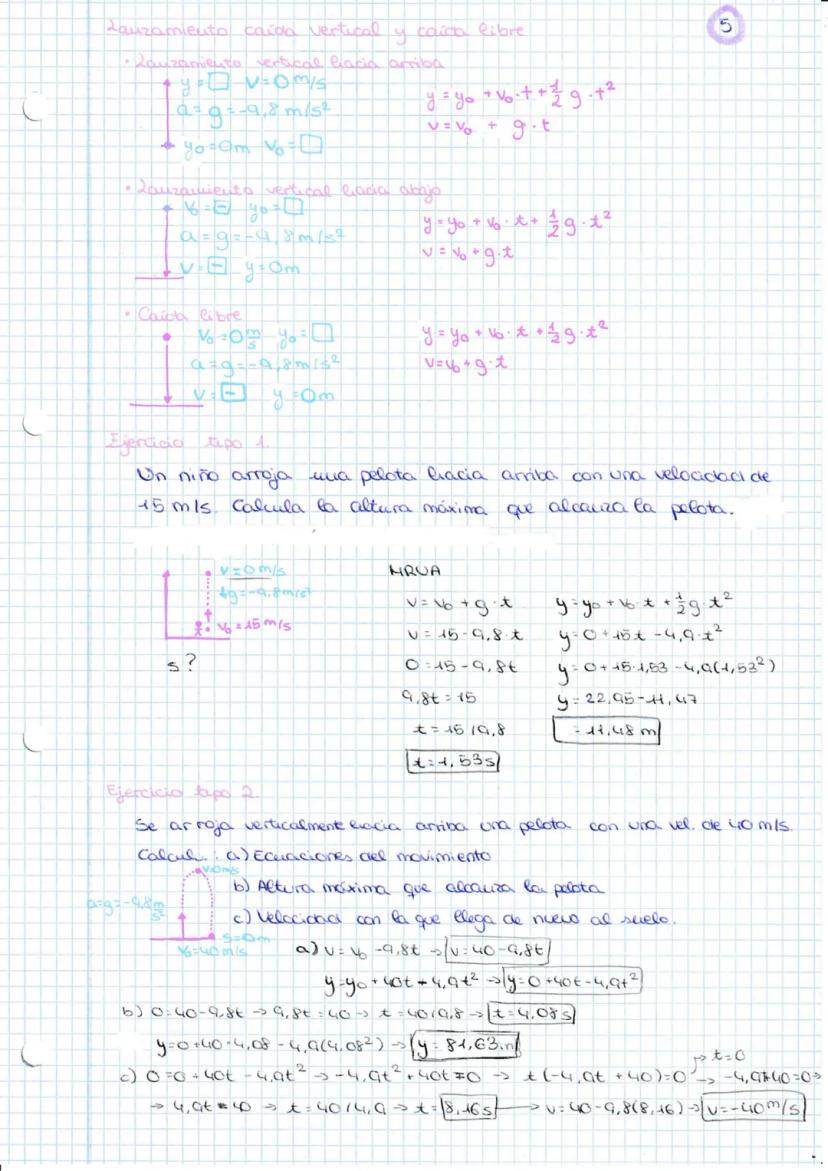 Lanzamiento caída vertical y caída libre
5
• Lanzamiento vertical hacia arriba
y=□ v=0m/s
a=g=-9,8m/s²
y₀=0m v₀=□
y=y₀+v₀·t+½g·t²
v=v₀+g·t
• Lanzamiento vertical hacia abajo
v₀=⊟ y₀=□
a=g=-9,8m/s²
v=⊟ y=0m
y=y₀+v₀·t+½g·t²
v=v₀+g·t
• Caída libre
v₀=0m/s y₀=□
a=g=-9,8m/s²
v=⊟ y=0m
y=y₀+v₀·t+½g·t²
v=v₀+g·t
Ejercicio tipo 1.
Un niño arroja una pelota hacia arriba con una velocidad de
15 m/s. Calcula la altura máxima que alcanza la pelota.
v=0m/s
g=-9,8m/s²
v₀=15m/s
s?
MRUA
v=v₀+g·t
v=15-9,8·t
0=15-9,8t
9,8t=15
t=15/9,8
t=1,53s
y=y₀+v₀·t+½g·t²
y=0+15t-4,9·t²
y=0+15·1,53-4,9(1,53²)
y=22,95-11,47
=11,48m
Ejercicio tipo 2.
Se arroja verticalmente hacia arriba una pelota con una vel. de 40 m/s.
Calcul.: a) Ecuaciones del movimiento
b) Altura máxima que alcanza la pelota
c) Velocidad con la que llega de nuevo al suelo.
v=0m/s
a=g=-9,8m/s²
s=0m
v₀=40m/s
a) v=v₀-9,8t → v=40-9,8t
y=y₀+40t-4,9t² → y=0+40t-4,9t²
b) 0=40-9,8t → 9,8t=40 → t=40/9,8 → t=4,08s
y=0+40·4,08-4,9(4,08²) → y=81,63m
→ t=0
c) 0=0+40t-4,9t² → -4,9t²+40t=0 → t(-4,9t+40)=0 → -4,9t+40=0 →
→ 4,9t=40 → t=40/4,9 → t=8,16s → v=40-9,8(8,16) → v=-40m/s